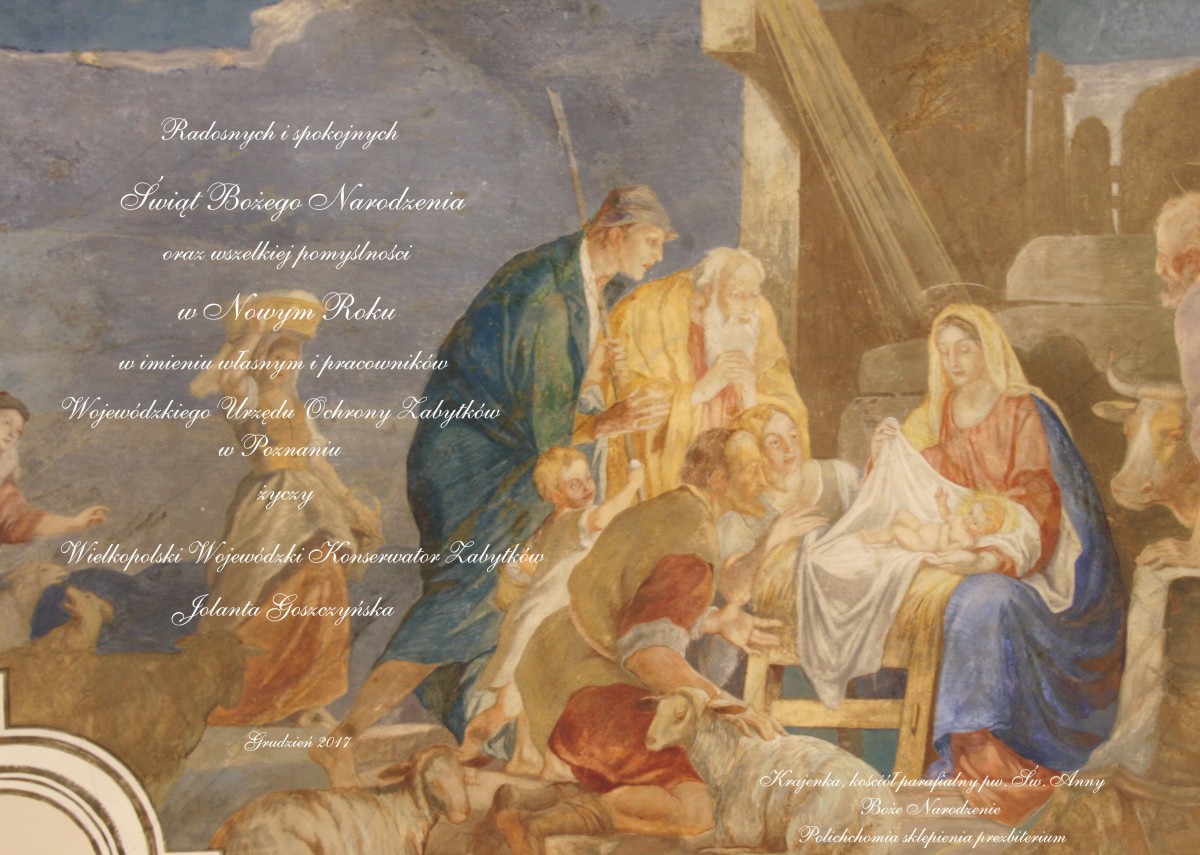 Radosnych i spokojnych
Świąt Bożego Narodzenia
oraz wszelkiej pomyślności
w Nowym Roku
w imieniu własnym i pracowników
Wojewódzkiego Urzędu Ochrony Zabytków
w Poznaniu
życzy
Wielkopolski Wojewódzki Konserwator Zabytków
Jolanta Goszczyńska
Grudzień 2017
Krajenka, kościół parafialny pw. Św. Anny
Boże Narodzenie
Polichchomia sklepienia prezbiterium